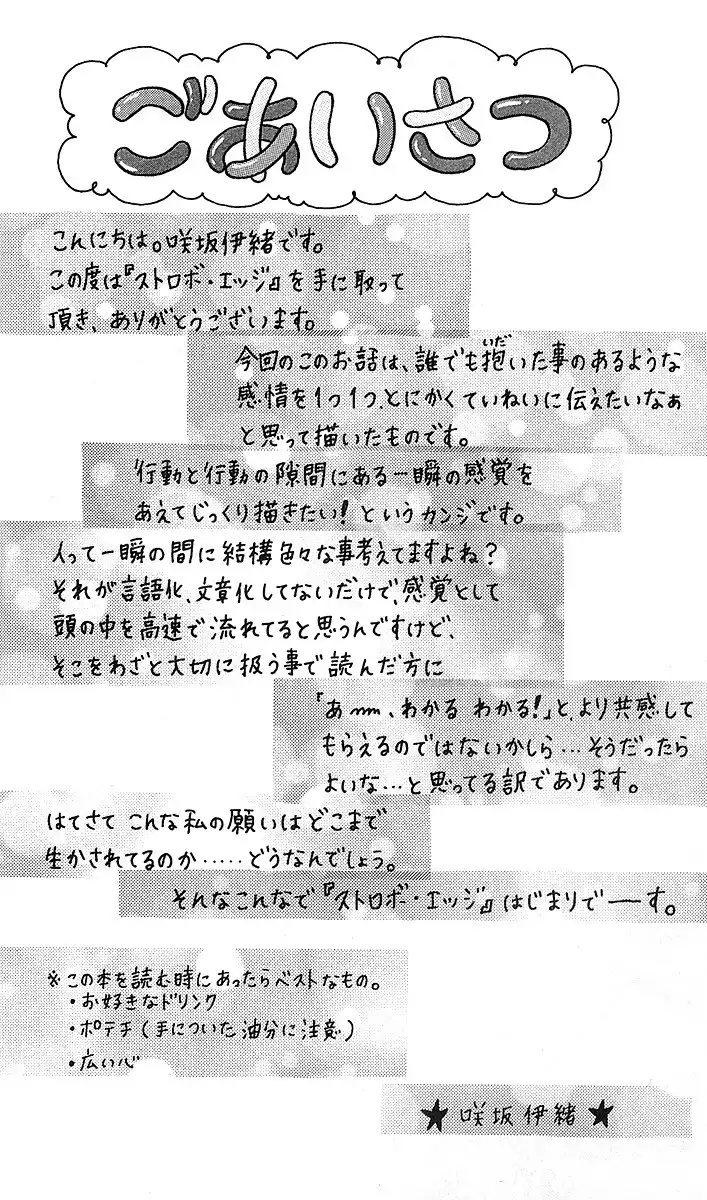 ごあいさつ
こんにちは。咲坂伊緒です。
この度は『ストロボ・エッジ』を手に取って
頂き、ありがとうございます。
今回のこのお話は、誰でも抱いた事のあるような
いだ
感情を1つ1つ、とにかくていねいに伝えたいなぁ
と思って描いたものです。
行動と行動の隙間にある一瞬の感覚を
あえてじっくり描きたい!というカンジです。
人って一瞬の間に結構色々な事考えてますよね?
それが言語化、文章化してないだけで、感覚として
頭の中を高速で流れてると思うんですけど、
そこをわざと大切に扱う事で読んだ方に
「あ〰、わかるわかる!」と、より共感して
もらえるのではないかしら…そうだったら
よいな…と思ってる訳であります。
はてさてこんな私の願いはどこまで
生かされてるのか……どうなんでしょう。
そんなこんなで『ストロボ・エッジ』はじまりでーす。
※この本を読む時にあったらベストなもの。
・お好きなドリンク
・ポテチ(手についた油分に注意)
・広い心
★咲坂伊緒★